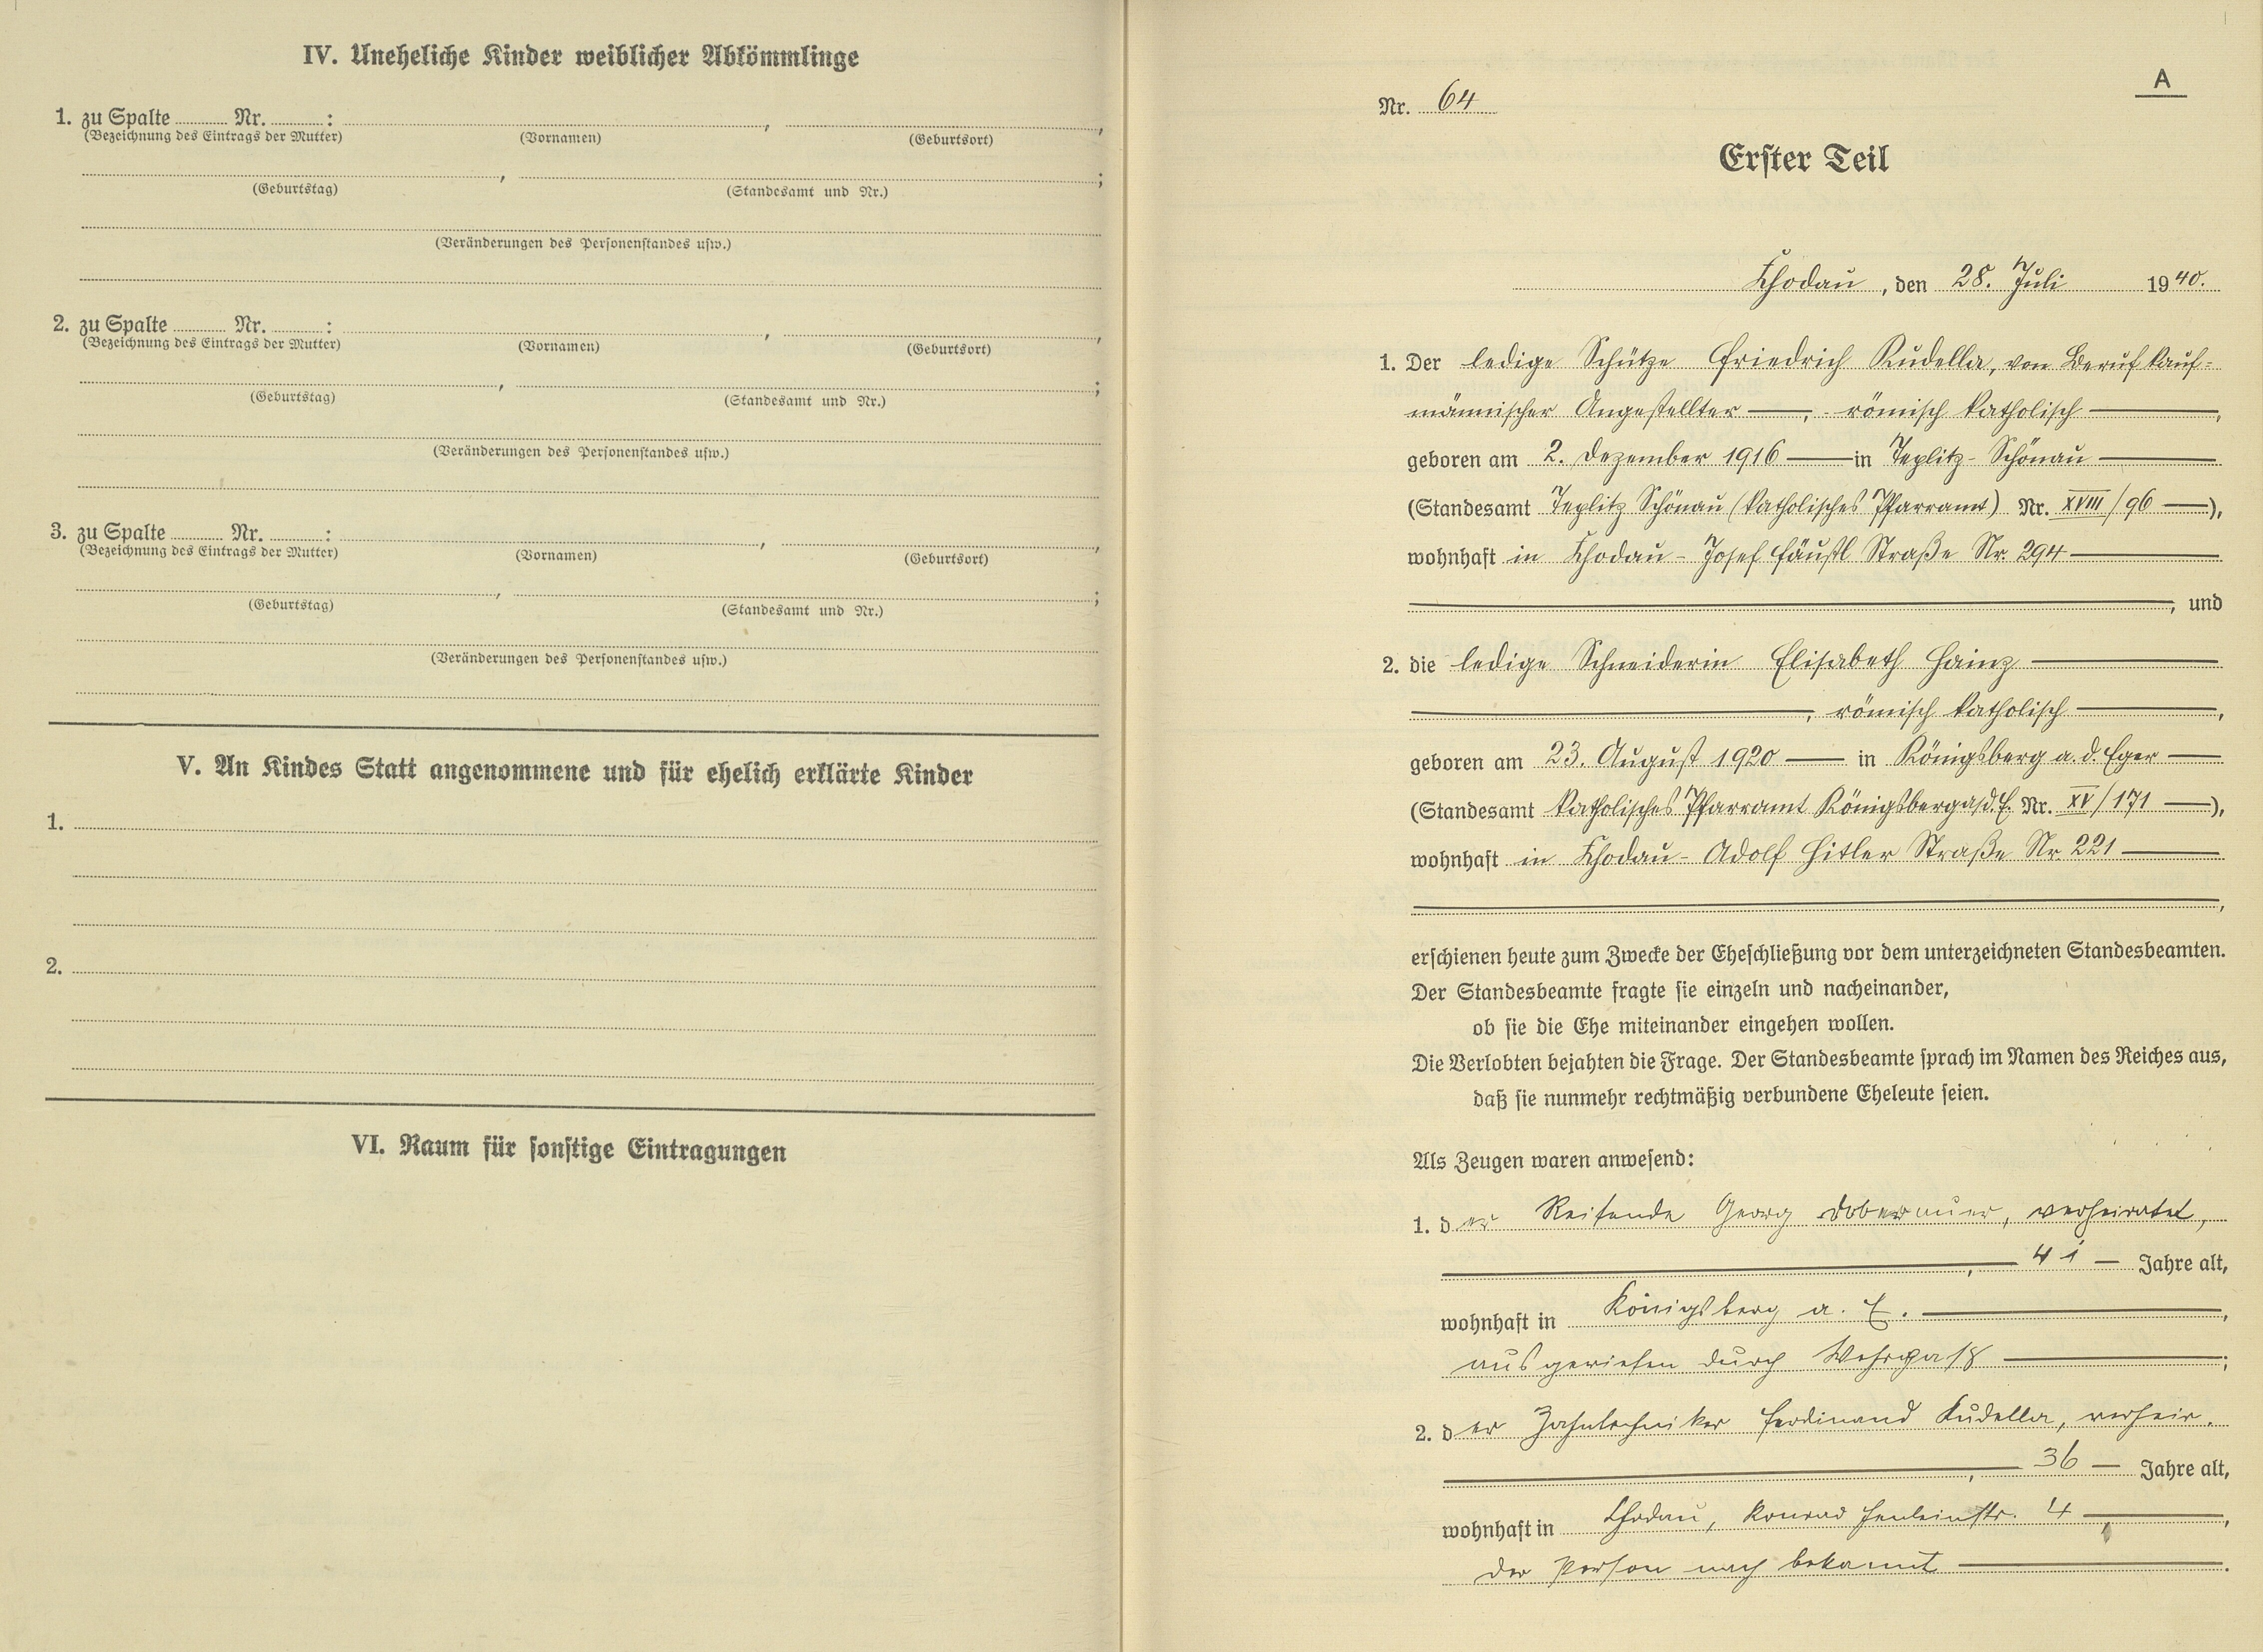 IV. Uneheliche Kinder weiblicher Abkömmlinge
1. zu Spalte ........ Nr. ........ : ........ , ........ ,
(Bezeichnung des Eintrags der Mutter) (Vornamen) (Geburtsort)
........ , ........ ;
(Geburtstag) (Standesamt und Nr.)
(Veränderungen des Personenstandes usw.)
2. zu Spalte ........ Nr. ........ : ........ , ........ ,
(Bezeichnung des Eintrags der Mutter) (Vornamen) (Geburtsort)
........ , ........ ;
(Geburtstag) (Standesamt und Nr.)
(Veränderungen des Personenstandes usw.)
3. zu Spalte ........ Nr. ........ : ........ , ........ ,
(Bezeichnung des Eintrags der Mutter) (Vornamen) (Geburtsort)
........ , ........ ;
(Geburtstag) (Standesamt und Nr.)
(Veränderungen des Personenstandes usw.)
V. An Kindes Statt angenommene und für ehelich erklärte Kinder
1.
2.
VI. Raum für sonstige Eintragungen
A
Nr. 64
Erster Teil
Chodau, den 28. Juli 1940.
1. Der ledige Schütze Friedrich Kudella, von Beruf kauf-
männischer Angestellter —, römisch katholisch —,
geboren am 2. Dezember 1916 — in Teplitz-Schönau —
(Standesamt Teplitz Schönau (katholisches Pfarramt) Nr. XVIII/96 —),
wohnhaft in Chodau - Josef Fäustl Straße Nr. 294 —
—, und
2. die ledige Schneiderin Elisabeth Hainz —
—, römisch katholisch —,
geboren am 23. August 1920 — in Königsberg a.d. Eger —
(Standesamt katholisches Pfarramt Königsberg a/d. E. Nr. XV/171 —),
wohnhaft in Chodau - Adolf Hitler Straße Nr 221 —
—,
erschienen heute zum Zwecke der Eheschließung vor dem unterzeichneten Standesbeamten.
Der Standesbeamte fragte sie einzeln und nacheinander,
ob sie die Ehe miteinander eingehen wollen.
Die Verlobten bejahten die Frage. Der Standesbeamte sprach im Namen des Reiches aus,
daß sie nunmehr rechtmäßig verbundene Eheleute seien.
Als Zeugen waren anwesend:
1. der Reisende Georg Dobernauer, verheiratet,
—, — 41 — Jahre alt,
wohnhaft in Königsberg a. E. —,
ausgewiesen durch Wehrpaß —;
2. der Zahntechniker Ferdinand Kudella, verheir.
—, — 36 — Jahre alt,
wohnhaft in Chodau, Konrad Henleinstr. 4 —,
der Person nach bekannt —.